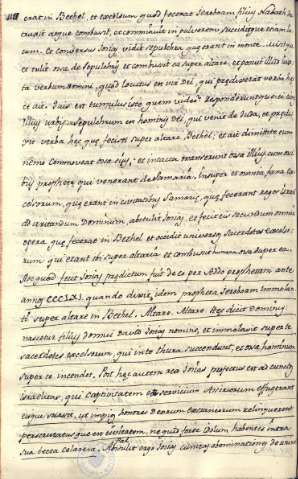 erat in Bethel, et excelsum quod fecerat Jeroboam filius Nabath
atque combussit, et comminuit in pulverem succenditque etiam lu-
cum. et conversus Josias vidit sepulchra, quæ erant in monte. misitque
et tulit ossa de sepulchris et combussit ea super altare, et polluit illud iux-
ta verbum domini, quod locutus est vir Dei, qui predixerat verba hec
et ait: Quis est tumulus iste, quem video? Responderuntque cives
illius urbis: sepulchrum est hominis Dei, qui venit de Juda, et predi-
xit verba hec, que fecisti super altare Bethel; et ait: dimittite eum
nemo commoveat ossa eius; et intacta manserunt ossa illius cum ossi-
bus prophete, qui venerat de Samaria. Insuper et omnia fana ex-
celsorum, que erant in civitatibus Samarie, que fecerant reges Israel
ad irritandum Dominum, abstulit Josias, et fecit eis secundum omnia
opera, que fecerat in Bethel et occidit universos sacerdotes excelso-
rum, qui erant ibi super altaria et combussit humana ossa super ea.
Hoc quod fecit Josias predictum fuit de eo per Addo prophetam ante
annos CCCLXI. quando dixit, idem propheta Jeroboam immolan-
ti super altare in Bethel. Altare. Altare. Hec dicit Dominus
nascetur filius domui David Josias nomine, et immolabit super te
sacerdotes excelsorum, qui in te thura succendunt, et ossa hominum
super te incendet. Post hec autem rex Josias profectus est ad cunctos
Israelitas, qui captivitatem et servitium Assiriorum effugerant
eisque suasit, ut impios honores Deorum extraneorum relinquerent
perscrutatusque est civitatem, ne quis forte Idolum haberet intra
sua tecta celatum. Abstulit ergo Josias cunctas abominationes de